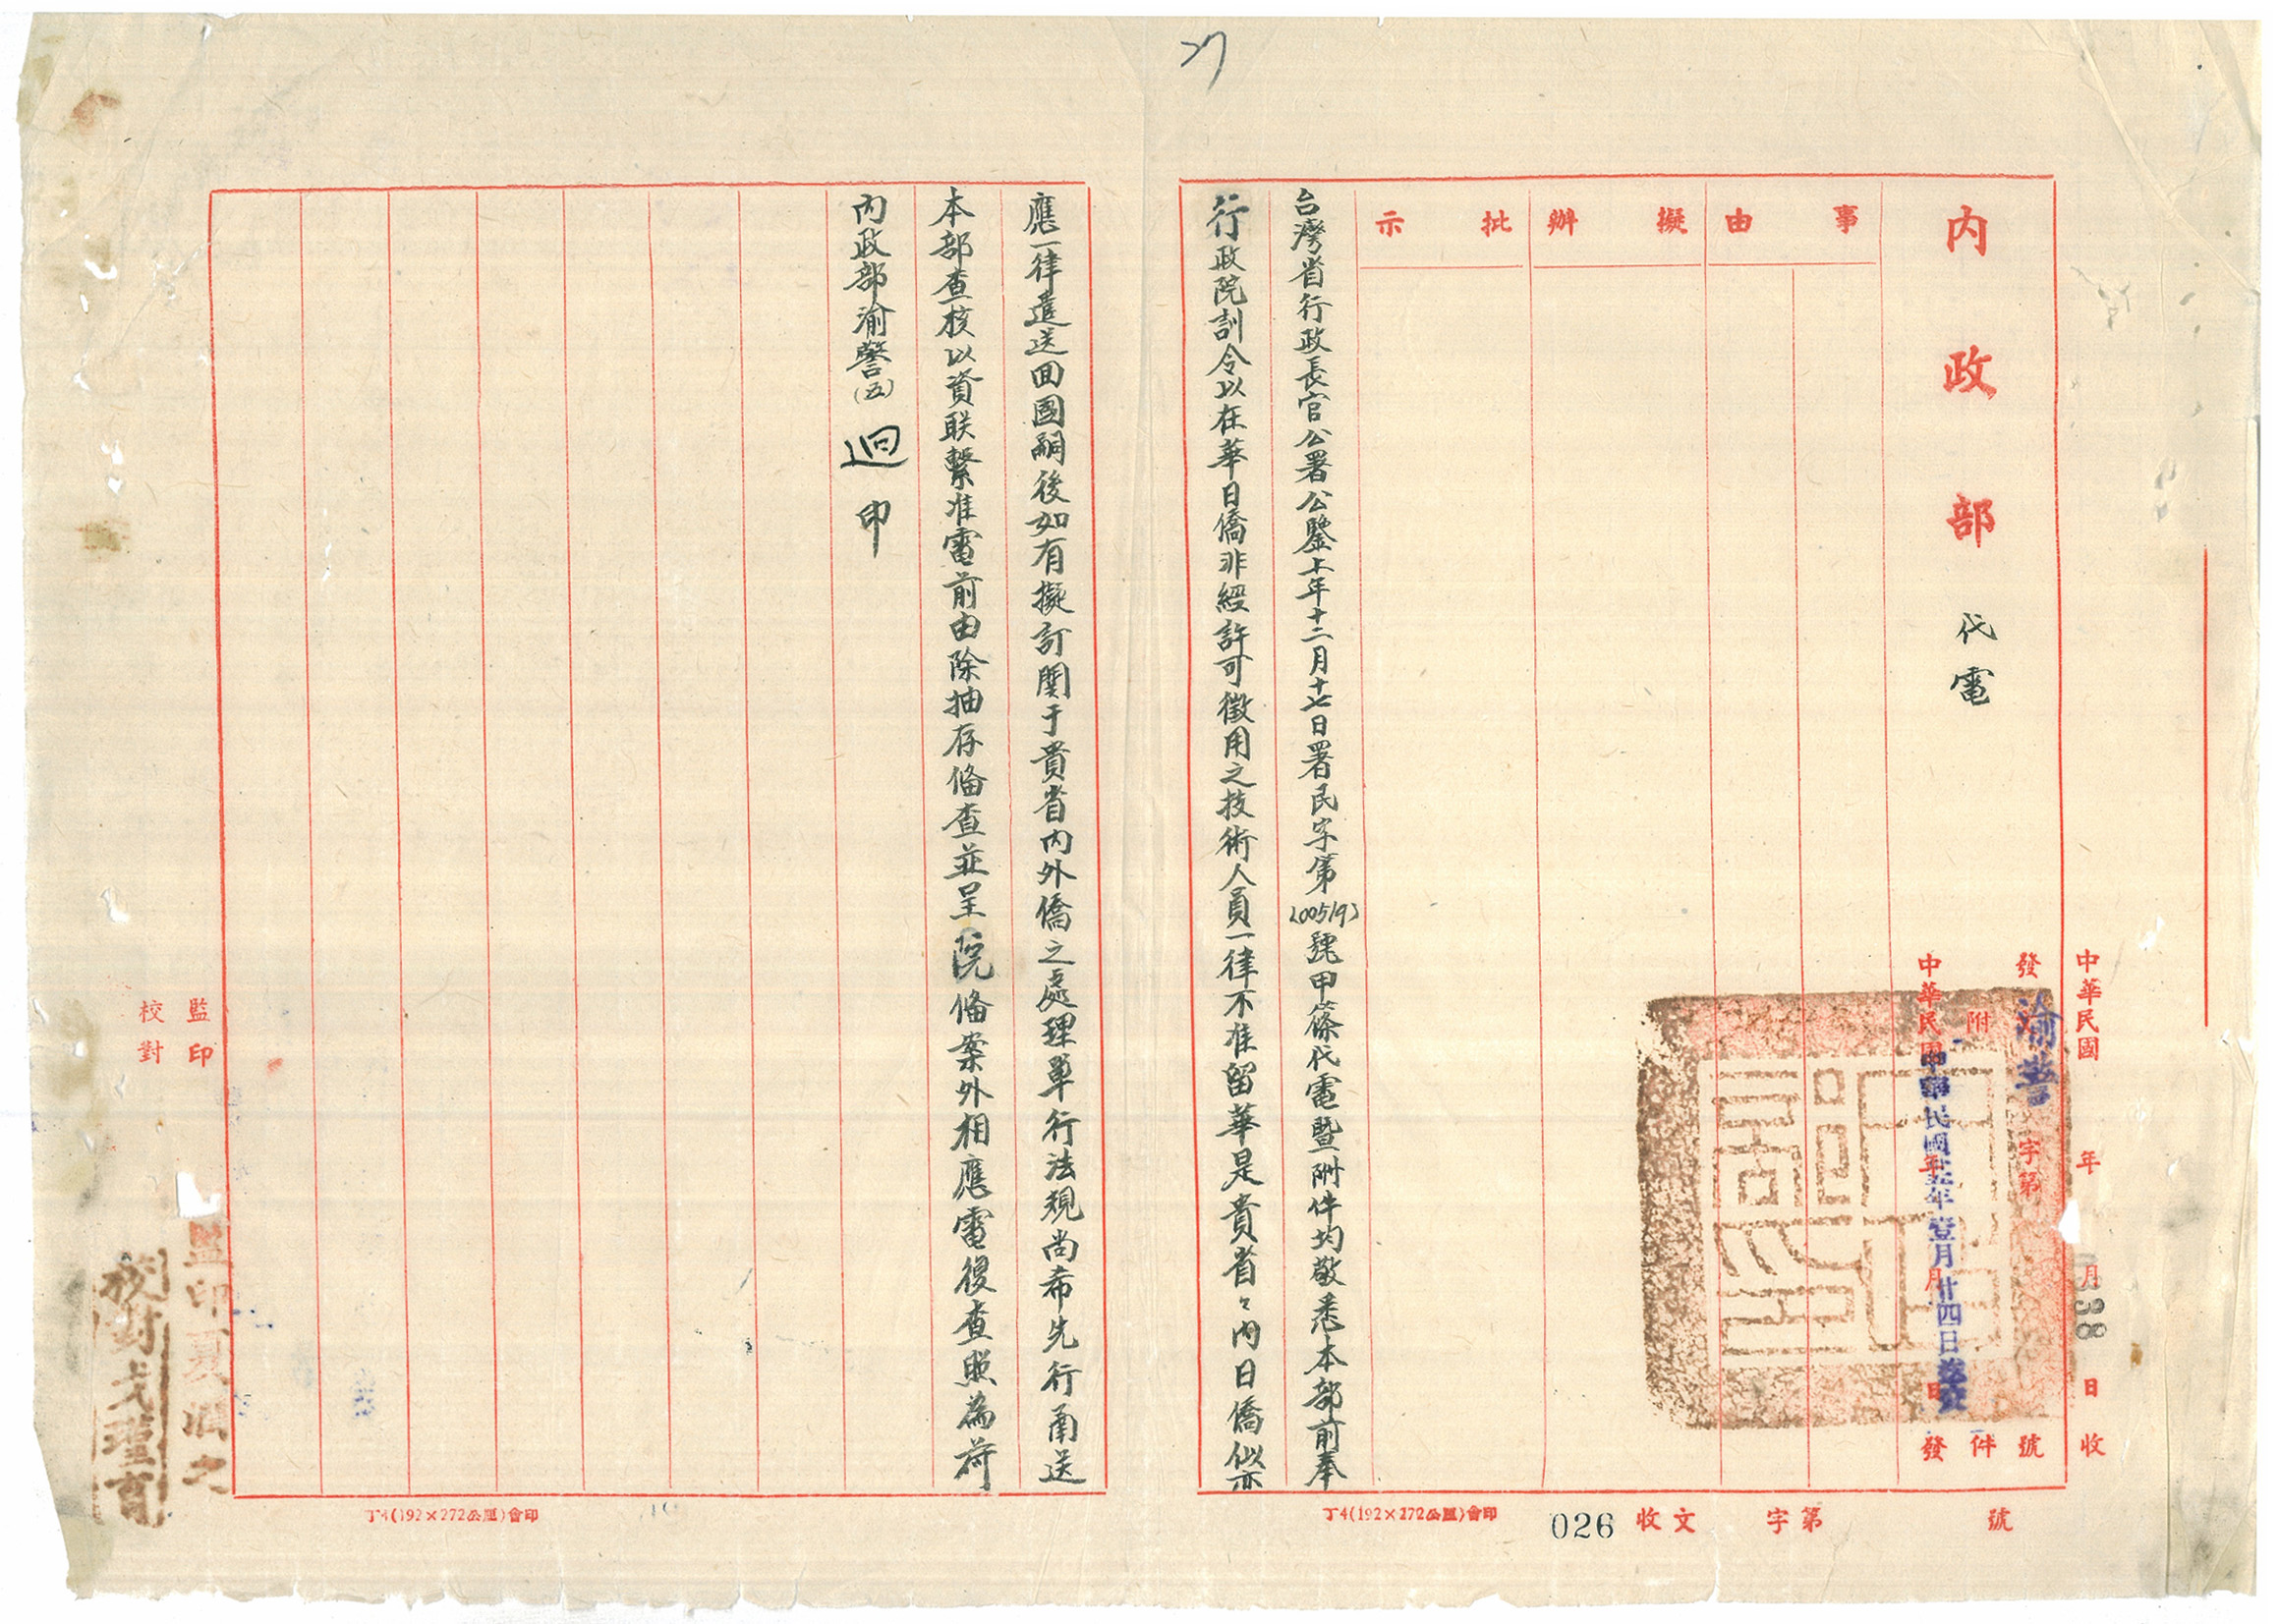 27
中華民國 年 月 日 收
內政部 代電
發文渝警字第 號
附 件
中華民國 年 月 日 發
中華民國卅五年壹月廿四日
事由
擬辦
批示
台灣省行政長官公署公鑒上年十二月十七日署民字第(00519)號甲篠代電暨附件均敬悉本部前奉
行政院訓令以在華日僑非經許可徵用之技術人員一律不准留華是貴省々內日僑似亦
應一律遣送回國嗣後如有擬訂關于貴省內外僑之處理單行法規尚希先行甬送
本部查核以資联繫准電前由除抽存俻查並呈院俻案外相應電復查照為荷
內政部渝警(五)迥印
監印
校對
丁4(192×272公厘)會印
丁4(192×272公厘)會印
026
收文 字第 號